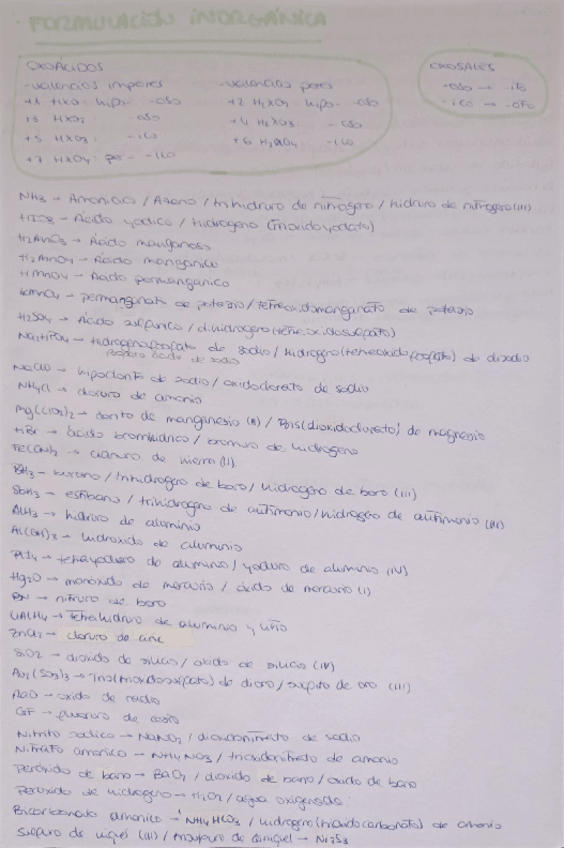 · FORMULACIÓN INORGÁNICA
OXOÁCIDOS
OXOSALES
-valencias impares
-valencias pares
-oso → -ito
+1 HXO: hipo- -oso
+2 H2XO2: hipo- -oso
-ico → -ato
+3 HXO2: -oso
+4 H2XO3: -oso
+5 HXO3: -ico
+6 H2XO4: -ico
+7 HXO4: per- -ico
NH3 → Amoniaco / Azano / trihidruro de nitrógeno / hidruro de nitrógeno (III)
HIO3 → Ácido yodico / hidrogeno (trioxidoyodato)
H2MnO3 → Ácido manganoso
H2MnO4 → Ácido mangánico
HMnO4 → Ácido permangánico
KMnO4 → permanganato de potasio / tetraoxidomanganato de potasio
H2SO4 → Ácido sulfúrico / dihidrogeno (tetraoxidosulfato)
Na2HPO4 → hidrogenofosfato de sodio / hidrogeno (tetraoxidofosfato) de disodio
fosfato ácido de sodio
NaClO → hipoclorito de sodio / oxidoclorato de sodio
NH4Cl → cloruro de amonio
Mg(ClO2)2 → clorito de / Bis(dioxidoclorato) de magnesio
HBr → ácido bromhídrico / bromuro de hidrogeno
Fe(CN)2 → cianuro de hierro (II)
BH3 → borano / trihidrogeno de boro / hidrogeno de boro (III)
SbH3 → estibano / trihidrogeno de antimonio / hidrogeno de antimonio (III)
AlH3 → hidruro de aluminio
Al(OH)3 → hidroxido de aluminio
→ tetrayoduro de aluminio / yoduro de aluminio (IV)
Hg2O → monóxido de mercurio / óxido de mercurio (I)
BN → nitruro de boro
LiAlH4 → tetrahidruro de aluminio y litio
ZnCl2 → cloruro de zinc
SiO2 → dióxido de silicio / óxido de silicio (IV)
Au2(SO3)3 → tris(trioxidosulfato) de dioro / sulfito de oro (III)
RaO → oxido de radio
CsF → fluoruro de cesio
Nitrito sodico → NaNO2 / dioxidonitrato de sodio
Nitrato amonico → NH4NO3 / trioxidonitrato de amonio
Peróxido de bario → BaO2 / dióxido de bario / oxido de bario
Peróxido de hidrogeno → H2O2 / agua oxigenada
Bicarbonato amonico → NH4HCO3 / hidrogeno (trioxidocarbonato) de amonio
Sulfuro de niquel (III) / trisulfuro de diniquel → Ni2S3